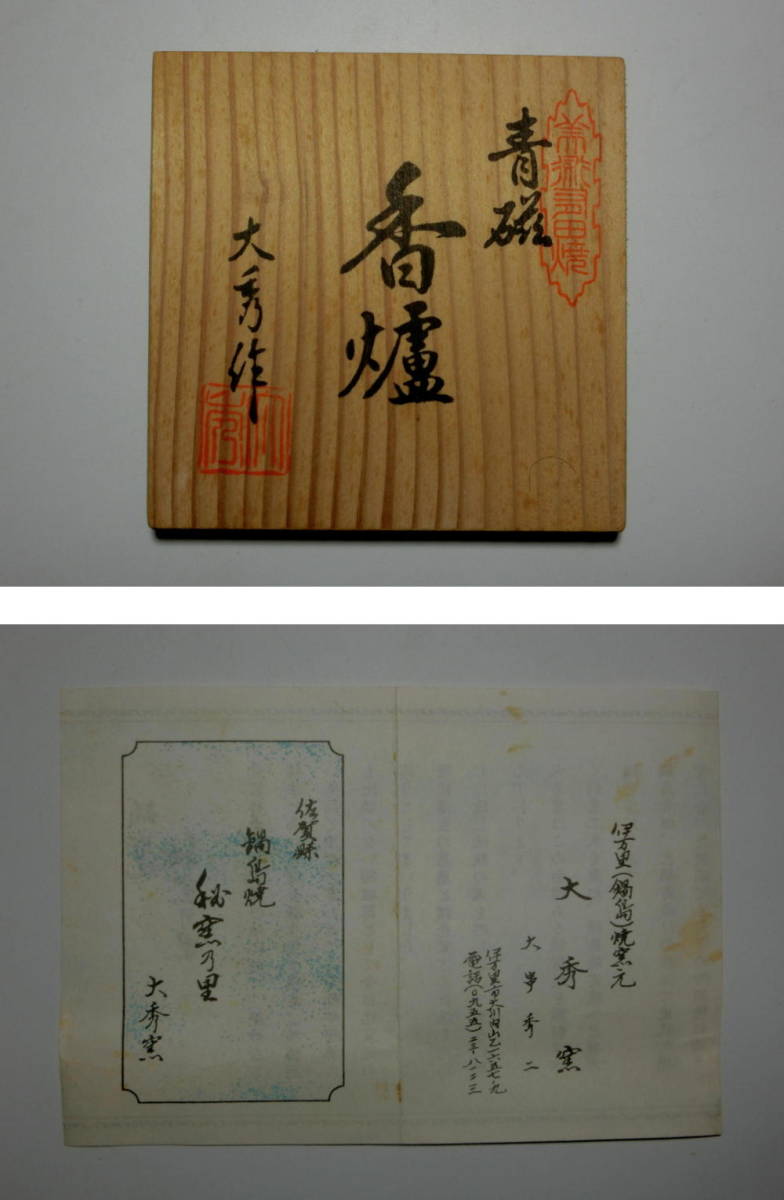 美術有田焼
青磁
香爐
大秀作
大秀
伊万里(鍋島)焼窯元
大秀窯
大串秀二
伊万里市大川内山乙一六五七ノ九
電話(〇九五五)二三-八一二三
佐賀県
鍋島焼
秘窯乃里
大秀窯